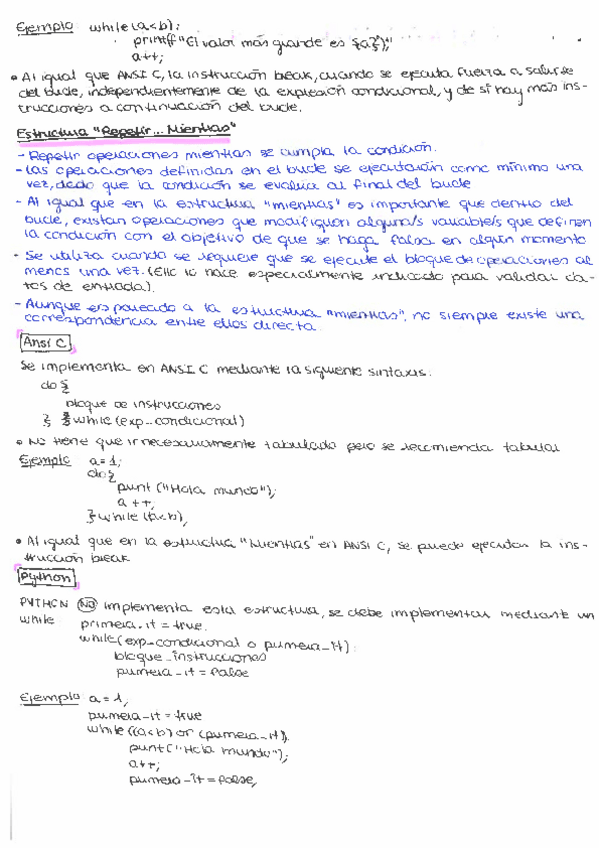 Ejemplo while(a<b):
printf("El valor más grande es {a}");
a++;
• Al igual que ANSI C, la instrucción break, cuando se ejecuta fuerza a salirse
del bucle, independientemente de la expresión condicional, y de si hay más ins-
trucciones a continuación del bucle.
Estructura "Repetir... Mientras"
- Repetir operaciones mientras se cumpla la condición.
- Las operaciones definidas en el bucle se ejecutarán como mínimo una
vez, dado que la condición se evalúa al final del bucle
- Al igual que en la estructura "mientras" es importante que dentro del
bucle, existan operaciones que modifiquen alguna/s variable/s que definen
la condición con el objetivo de que se haga falsa en algún momento
- Se utiliza cuando se requiere que se ejecute el bloque de operaciones al
menos una vez. (Ello lo hace especialmente indicado para validar da-
tos de entrada).
- Aunque es parecido a la estructura "mientras", no siempre existe una
correspondencia entre ellos directa.
Ansi C
Se implementa en ANSI C mediante la siguiente sintaxis:
do {
bloque de instrucciones
} while (exp_condicional)
• No tiene que ir necesariamente tabulado pero se recomienda tabular
Ejemplo a=1;
do{
print ("Hola mundo");
a++;
} while (a<b);
• Al igual que en la estructura "Mientras" en ANSI C, se puede ejecutar la ins-
trucción break
Python
PYTHON NO implementa esta estructura, se debe implementar mediante un
while primera_it = true.
while (exp_condicional o primera_it):
bloque_instrucciones
primera_it = False
Ejemplo a=1;
primera_it = true
while((a<b) or (primera_it)).
print("Hola mundo");
a++;
primera_it = false,